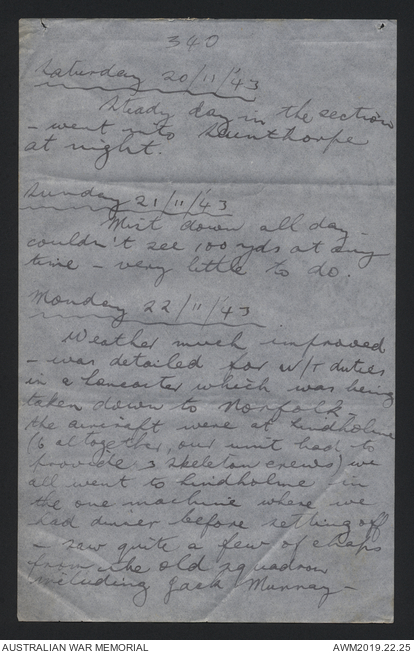 340
Saturday 20/11/43
Steady day in the section
- went into Scunthorpe
at night.
Sunday 21/11/43
Mist down all day -
couldn't see 100 yds at any
time - very little to do.
Monday 22/11/43
Weather much improved
- was detailed for W/T duties
in a Lancaster which was being
taken down to Norfolk -
the aircraft were at Lindholme
(6 altogether, our unit had to
provide 3 skeleton crews) we
all went to Lindholme in
the one machine where we
had dinner before setting off
- saw quite a few of chaps
from the old squadron
including Jack Murray -
AUSTRALIAN WAR MEMORIAL
AWM2019.22.25